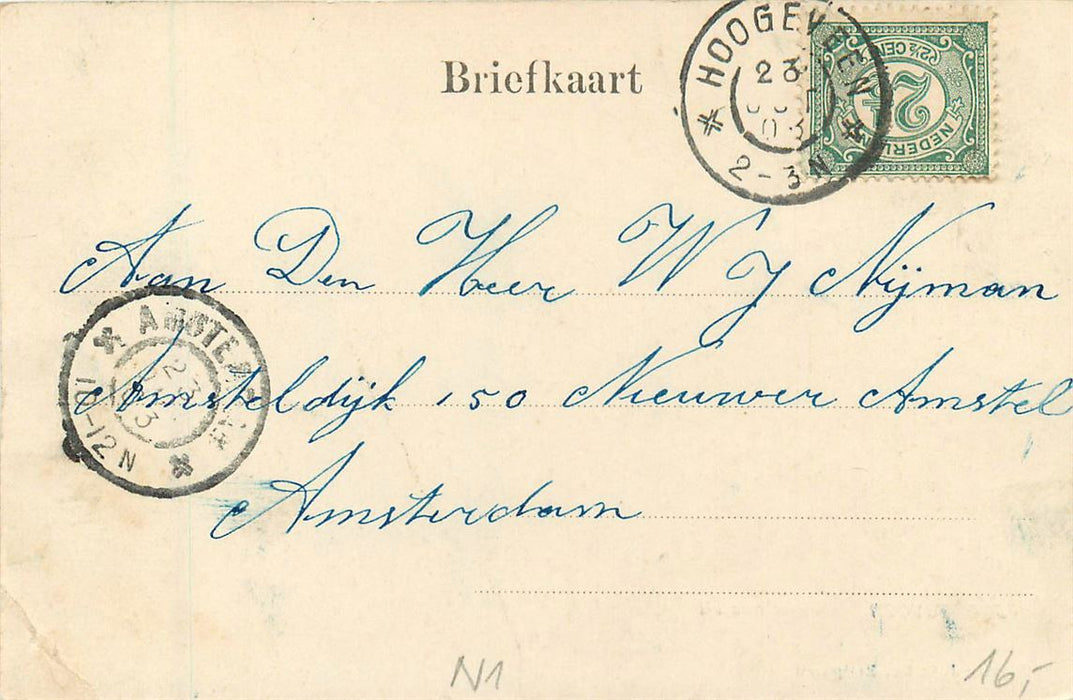 Briefkaart
HOOGEVEEN
23
03
2-3N
2½ CENT
2½
NEDERLAND
Aan Den Heer W J Nijman
AMSTERDAM
23
3
10-12N
Amsteldijk 150 Nieuwer Amstel
Amsterdam
N1
16,-